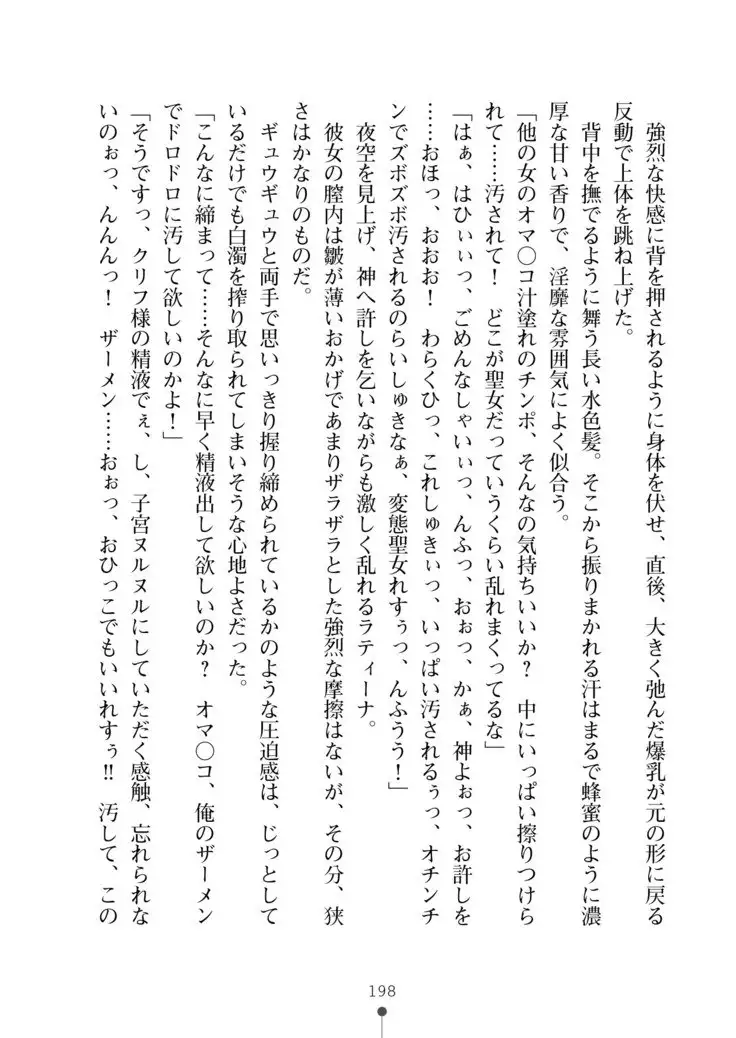 強烈な快感に背を押されるように身体を伏せ、直後、大きく弛んだ爆乳が元の形に戻る
反動で上体を跳ね上げた。
　背中を撫でるように舞う長い水色髪。そこから振りまかれる汗はまるで蜂蜜のように濃
厚な甘い香りで、淫靡な雰囲気によく似合う。
「他の女のオマ〇コ汁塗れのチンポ、そんなの気持ちいいか？　中にいっぱい擦りつけら
れて……汚されて！　どこが聖女だっていうくらい乱れまくってるな」
「はぁ、はひぃぃっ、ごめんなしゃいぃっ、んふっ、おぉっ、かぁ、神よぉっ、お許しを
……おほっ、おおお！　わらくひっ、これしゅきぃっ、いっぱい汚されるぅっ、オチンチ
ンでズボズボ汚されるのらいしゅきなぁ、変態聖女れすぅっ、んふうう！」
　夜空を見上げ、神へ許しを乞いながらも激しく乱れるラティーナ。
　彼女の膣内は皺が薄いおかげであまりザラザラとした強烈な摩擦はないが、その分、狭
さはかなりのものだ。
　ギュウギュウと両手で思いっきり握り締められているかのような圧迫感は、じっとして
いるだけでも白濁を搾り取られてしまいそうな心地よさだった。
「こんなに締まって……そんなに早く精液出して欲しいのか？　オマ〇コ、俺のザーメン
でドロドロに汚して欲しいのかよ！」
「そうですっ、クリフ様の精液でぇ、し、子宮ヌルヌルにしていただく感触、忘れられな
いのぉっ、んんんっ！　ザーメン……おぉっ、おひっこでもいいれすぅ‼　汚して、この
198